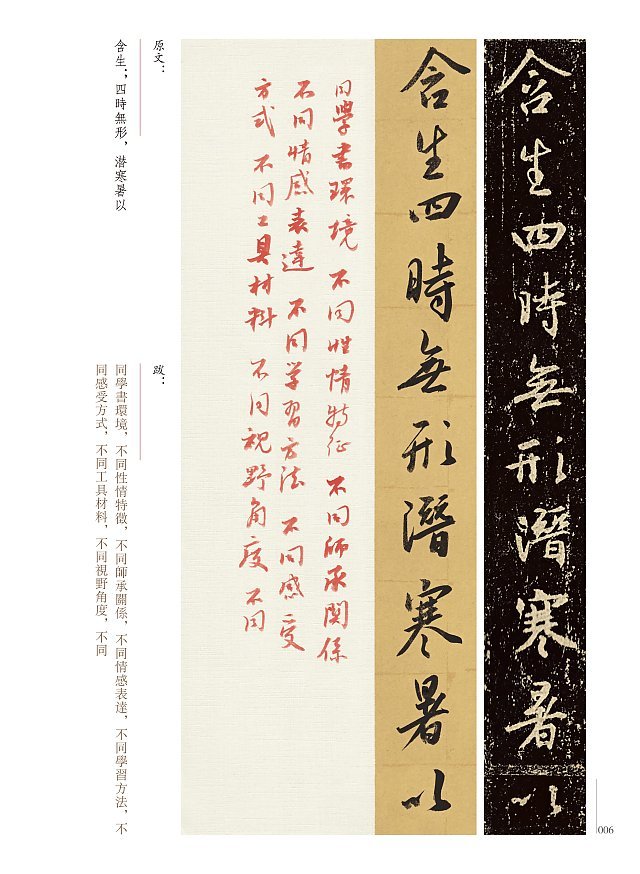 含生四時無形潛寒暑以
含生四時無形潛寒暑以
同學書環境 不同性情特征 不同師承関係
不同情感表達 不同学習方法 不同感受
方式 不同工具材料 不同視野角度 不同
原文：
含生；四時無形，潜寒暑以
跋：
同學書環境，不同性情特徵，不同師承關係，不同情感表達，不同學習方法，不
同感受方式，不同工具材料，不同視野角度，不同
006